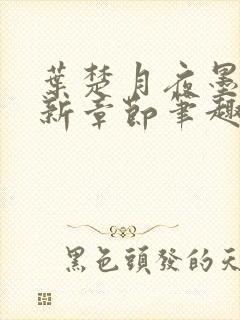 葉楚月夜墨
新章節筆趣
黑色頭發的天